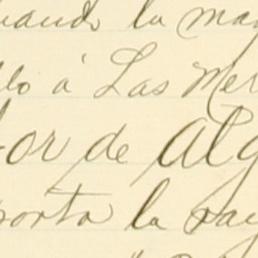 uando la ma
lo á Las Mer
or de Alg
porta la ra